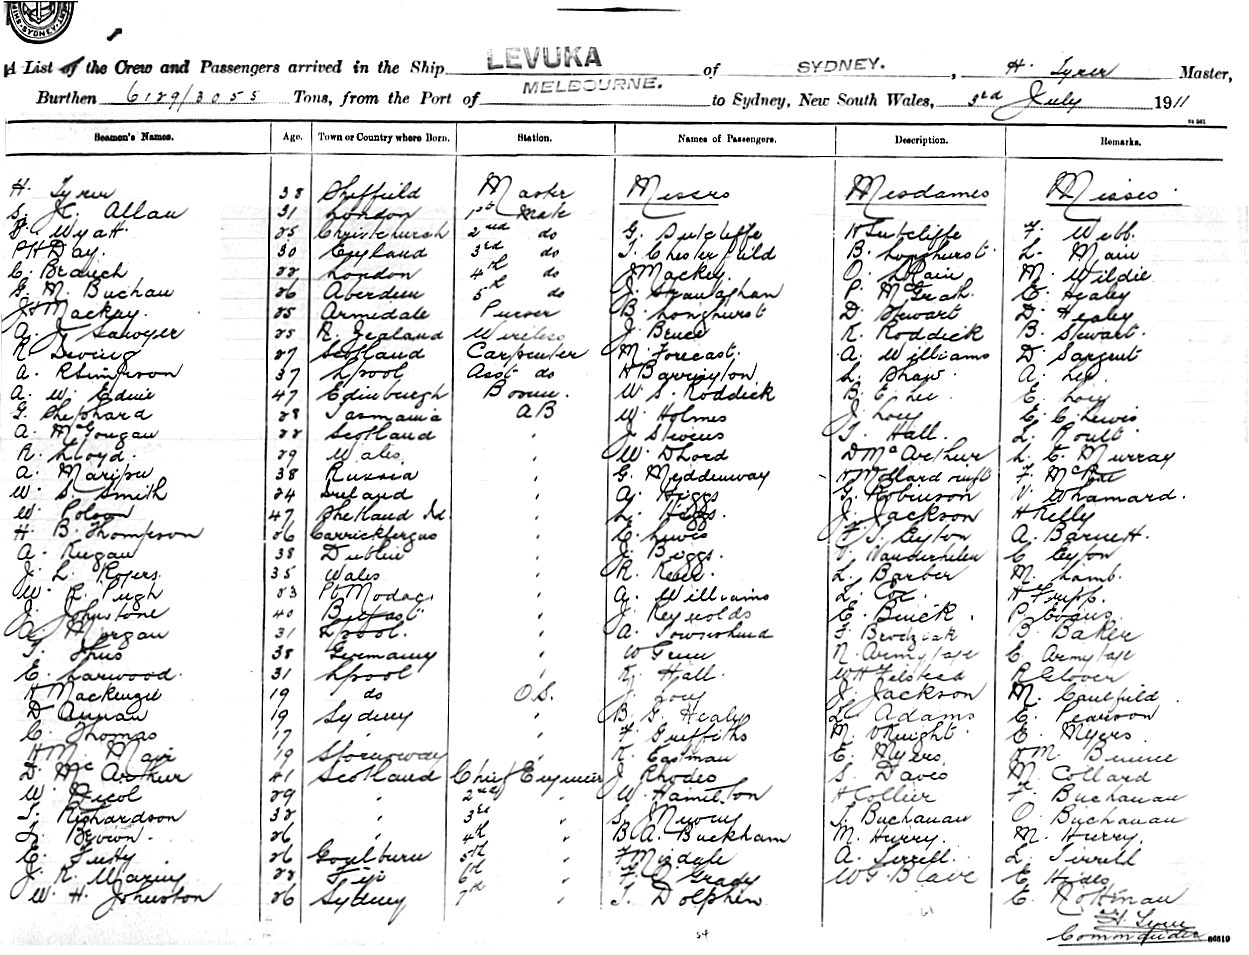 SYDNEY
A List of the Crew and Passengers arrived in the Ship LEVUKA of SYDNEY. , H. Tyrer Master,
Burthen 6129/3055 Tons, from the Port of MELBOURNE. to Sydney, New South Wales, 3rd July 1911
Seamen's Names. Age. Town or Country where Born. Station. Names of Passengers. Description. Remarks.
H. Tyrer 38 Sheffield Master Messrs Mesdames Misses
S. K. Allan 31 London 1st Mate
F Wyatt 25 Christchurch 2nd do G. Sutcliffe H Sutcliffe F. Webb
P H Day. 30 England 3rd do T. Chesterfield B. Longhurst L. Main
C. Branch 22 London 4th do J Mackey. O. Main M. Wildie
G. M. Buchan 26 Aberdeen 5th do J. Straughan P. McGrath. E. Healey
J H Mackay. 25 Armidale Purser B. Longhurst D. Stewart D. Healey
A. J. Sawyer 25 N. Zealand Wireless J. Bruce K. Roddick B. Stewart
R Deving 27 Scotland Carpenter M. Forecast. A. Williams D. Sargent
A. R Simpson 37 L'pool Asst do H Barrington L. Shaw. A. Lee
A. W. Edie 47 Edinburgh Bosun. W. S. Roddick B. E. Lee E. Loey
G. Shephard 28 Tasmania A B W. Holmes J. Loey E. C. Lewis
A. McGougan 22 Scotland " J Stevens T. Hall. L. Roult
R. Lloyd. 29 Wales " W. D Lord D McArthur L. E. Murray
A. Maripu 38 Russia " G. Meddenway F. McRae
W. S. Smith 24 Ireland " A. Higgs G. Robinson V. Whamard.
W. Polson 47 Shetland Isd " L. Higgs. J. Jackson H Kelly
H. B. Thompson 26 Carrickfergus " C. Lewis F. T. Eyton A. Barnett.
A. Regan 38 Dublin " J. Biggs. V. Vanderhelen C. Eyton
J. L. Rogers. 35 Wales " R. Keir. L. Barber M. Lamb.
W. R. Pugh 23 Pt Madoc. " A. Williams L. Cox. H Tripp.
J. Johnstone 40 Belfast " J. Reynolds E. Buick. P. Evans
A. Morgan 31 L'pool. " A. Townshend F. Brodziak G. Baker
T. Thus 38 Germany " W Green N. Armytage E. Armytage
E. Larwood. 31 L'pool " R. Hall. W H Felstead R Glover
H Mackenzie 19 do O S. J. Loey J. Jackson M. Caulfield.
D. Annan 19 Sydney " B. G. Healy L. Adams E. Pearson
C. Thomas 17 " " F. Griffiths M. Knight. E. Myers.
H M. Mair 19 Stornoway " R. Eastman E. Myers. H M. Binnie
D. McArthur 41 Scotland Chief Engineer J. Rhodes S. Davis M. Collard
W. Nicol 29 " 2nd " W. Hamilton H Collier F. Buchanan
T. Richardson 32 " 3rd " S. T. Buchanan O. Buchanan
T. Brown. 26 " 4th " B A. Buckham M. Hurry. M. Hurry.
C. Tutty. 26 Goulburn 5th F Misdale A. Terrell. L. Terrell
J. K. Waring 22 Fiji 6th " F. O'Grady W G. Blave E Hides
W. H. Johnston 26 Sydney 7th " T. Dolphin. E. Rottman
54 61 H. Tyrer
Commander 86519